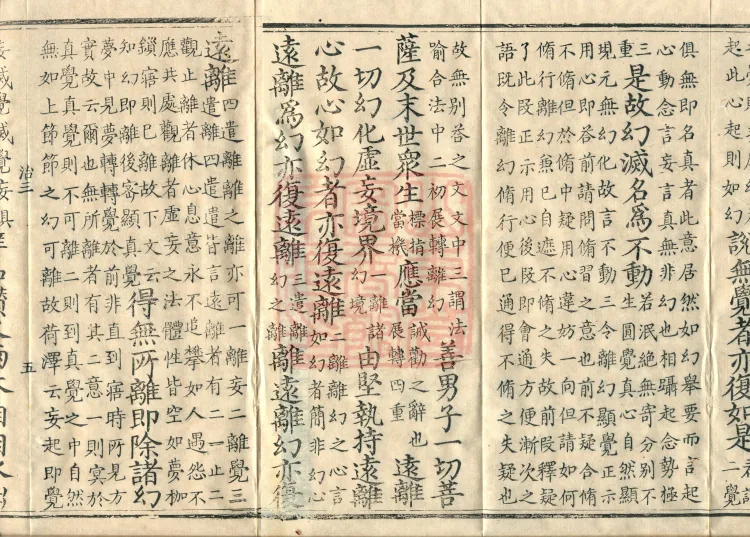 說無覺者亦復如是
俱無即名真者此意居然如幻舉要而言起
心動念言妄言真無非幻也相躡起念勢極
三重
是故幻滅名為不動
若泯絕無寄分別不
生圓覺真心自然顯
現元無幻化故言不動三令離幻顯覺正示
用心即答前請問脩習之意也前不疑合脩
不脩但於脩中疑用心違妨一向但請如何
脩行離幻兼已自遮不脩之失故前段釋疑
了此段正示用心後段即會通方便漸次之
語既令離幻脩行便已通得不脩之失疑也
故無別答之文文中三謂法
喻合法中二初展轉離幻
善男子一切菩
薩及末世眾生
標指
當機
應當
誠勸之辭也
展轉四重
遠離
一切幻化虛妄境界
一離諸
幻境
由堅執持遠離
心故心如幻者亦復遠離
二離離幻之心言
如幻者簡非幻心
遠離為幻亦復遠離
三遣離
幻之離
離遠離幻亦復
遠離
四遣離離之離亦可一離妄二離覺三
遣離四遣遣皆言遠離者有二一止二
觀止離者休心息意永不追攀如人遇怨不
應共處觀離者虛妄之法體性皆空如夢枷
鎖寤則已離故下文云
知幻即離後審顯真覺
得無所離即除諸幻
夢中見夢轉轉覺於前非直到寤時所見方
實故云爾也無所離者有其二意一則冥於
真覺真覺則不可離二則到真覺之中自然
無如上節節之幻可離故荷澤云妄起即覺
治三
五